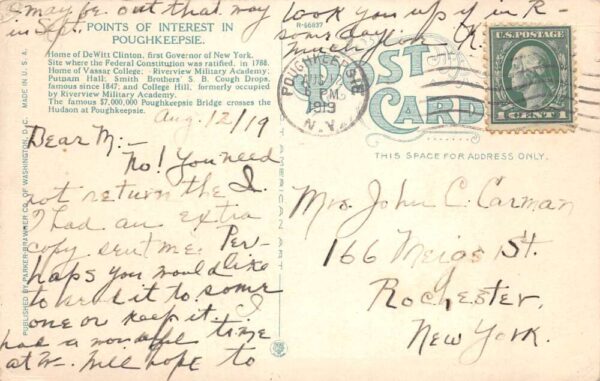 I may be out that way
in Sept.
POINTS OF INTEREST IN
POUGHKEEPSIE.
Home of DeWitt Clinton, first Governor of New York.
Site where the Federal Constitution was ratified, in 1788.
Home of Vassar College; Riverview Military Academy;
Putnam Hall, Smith Brothers' S. B. Cough Drops,
famous since 1847; and College Hill, formerly occupied
by Riverview Military Academy.
The famous $7,000,000 Poughkeepsie Bridge crosses the
Hudson at Poughkeepsie.
Aug. 12/19
Dear M:-
No! You need
not return the I.
I had an extra
copy sent me. Per-
haps you would like
to send it to some
one or keep it. I
had a wonderful time
at W- Will hope to
look you up if in R-
some day
Much love - 
R-66837
POST
CARD
POUGHKEEPSIE
AUG
PM
1919
N.Y.
U.S. POSTAGE
1 CENT 1
THIS SPACE FOR ADDRESS ONLY.
Mrs. John C. Carman
166 Meigs St.
Rochester,
New York.
MADE IN U. S. A.
PUBLISHED BY PARKER-BRAWNER CO. OF WASHINGTON, D. C.
AMERICAN ART